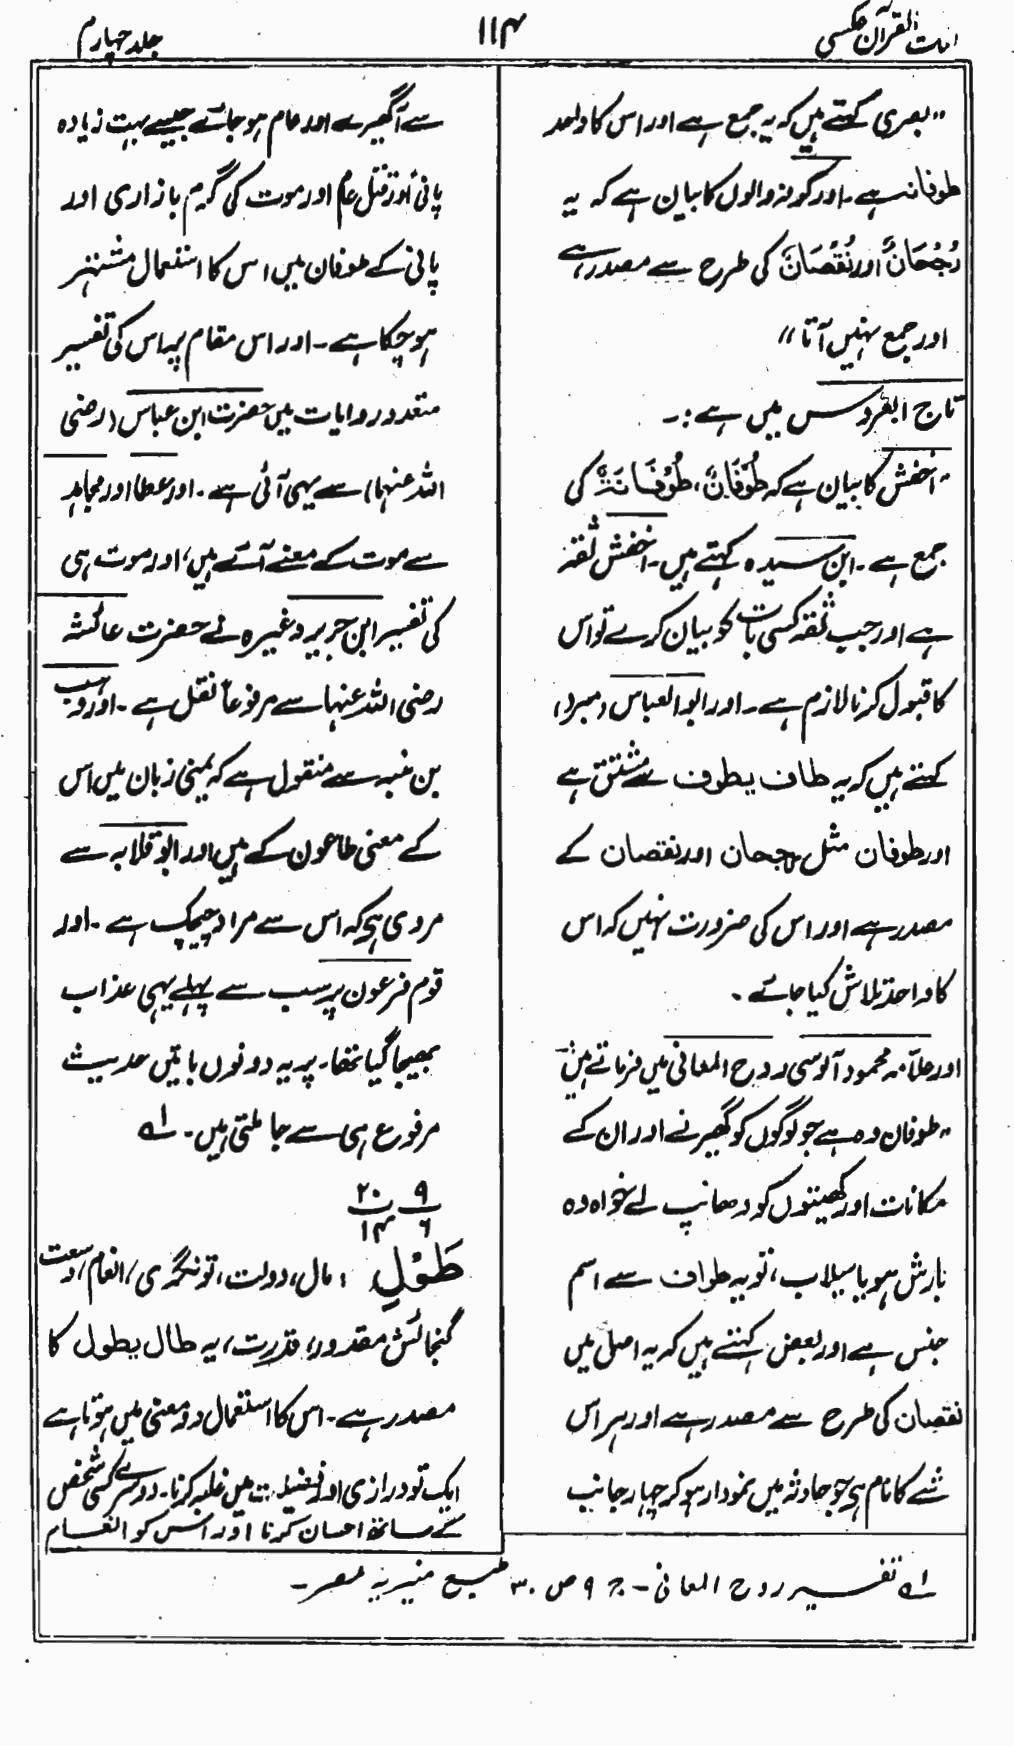 لغات القرآن عکسی
۱۱۴
جلد چہارم
"بصری کہتے ہیں کہ یہ جمع ہے اور اس کا واحد
طوفانہ ہے۔ اور کوفہ والوں کا بیان ہے کہ یہ
رُجْحَانٌ اور نُقْصَانٌ کی طرح سے مصدر ہے
اور جمع نہیں آتا"
تاج العروس میں ہے:۔
"اخفش کا بیان ہے کہ طُوْفَانٌ، طُوْفَانَۃٌ کی
جمع ہے۔ ابن سیدہ کہتے ہیں۔ اخفش ثقہ
ہے اور جب ثقہ کسی بات کو بیان کرے تو اس
کا قبول کرنا لازم ہے۔ اور ابوالعباس (مبرد)
کہتے ہیں کہ یہ طاف یطوف سے مشتق ہے
اور طوفان مثل رجحان اور نقصان کے
مصدر ہے اور اس کی ضرورت نہیں کہ اس
کا واحد تلاش کیا جائے۔
اور علامہ محمود آلوسی روح المعانی میں فرماتے ہیں
"طوفان وہ ہے جو لوگوں کو گھیرنے اور ان کے
مکانات اور کھیتوں کو ڈھانپ لے خواہ وہ
بارش ہو یا سیلاب، تو یہ طواف سے اسم
جنس ہے اور بعض کہتے ہیں کہ یہ اصل میں
نقصان کی طرح سے مصدر ہے اور ہر اس
شے کا نام ہے جو حادثہ میں نمودار ہو کر چہار جانب
سے آگھیرے اور عام ہو جائے جیسے بہت زیادہ
پانی اور قتل عام اور موت کی گرم بازاری اور
پانی کے طوفان میں اس کا استعمال مشتہر
ہو چکا ہے۔ اور اس مقام پر اس کی تفسیر
متعدد روایات میں حضرت ابن عباس (رضی
اللہ عنہما) سے یہی آئی ہے۔ اور عطا اور مجاہد
سے موت کے معنے آئے ہیں، اور موت ہی
کی تفسیر ابن جریر وغیرہ نے حضرت عائشہ
رضی اللہ عنہا سے مرفوعاً نقل ہے۔ اور وہب
بن منبہ سے منقول ہے کہ یمنی زبان میں اس
کے معنی طاعون کے ہیں اور ابو قلابہ سے
مروی ہے کہ اس سے مراد چیچک ہے۔ اور
قوم فرعون پر سب سے پہلے یہی عذاب
بھیجا گیا تھا۔ پر یہ دونوں باتیں حدیث
مرفوع ہی سے جا ملتی ہیں۔ ۱ھ
۹ ۲۰
۶ ۱۴
طَوْلِ: مال، دولت، تونگری، انعام، وسعت
گنجائش مقدور، قدرت، یہ طال یطول کا
مصدر ہے۔ اس کا استعمال دو معنی میں ہوتا ہے
ایک تو درازی اور فضیلت میں غلبہ کرنا۔ دوسرے کسی شخص
کے ساتھ احسان کرنا اور اس کو انعام
۱ھ تفسیر روح المعانی۔ ج ۹ ص ۳۰ طبع منیریہ مصر۔